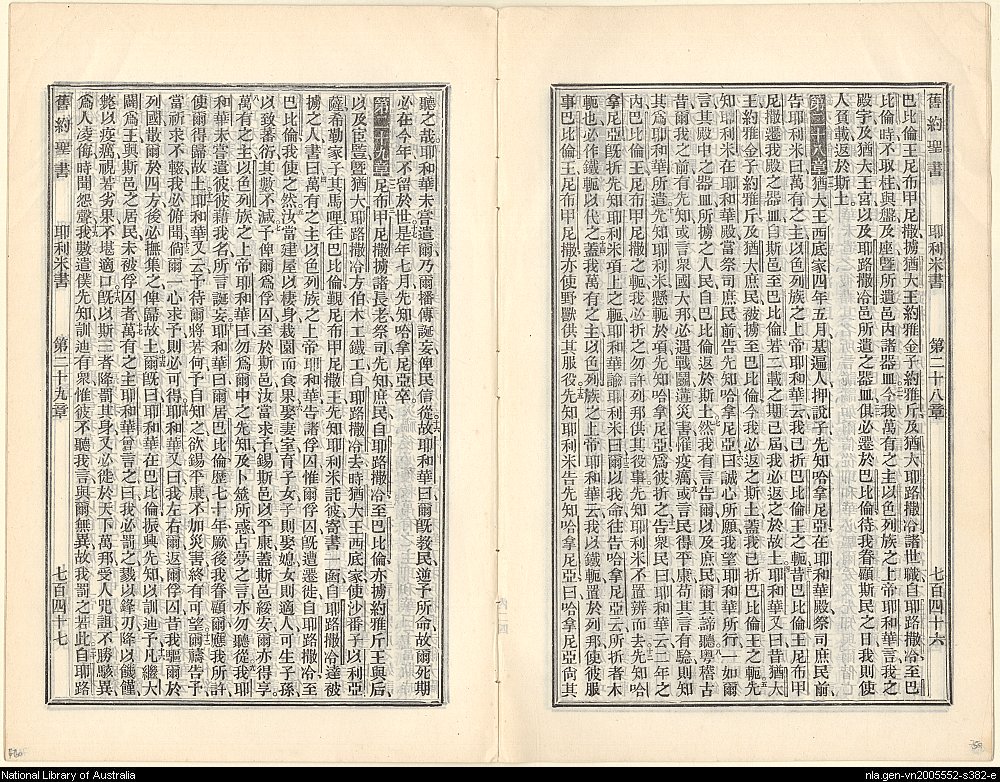 舊約聖書 耶利米書 第二十八章 七百四十六
巴比倫王尼布甲尼撒擄猶大王約雅金子約雅斤及猶大耶路撒冷諸世職自耶路撒冷至巴
比倫時不取柱與盤及座暨所遺邑內諸器皿今我萬有之主以色列族之上帝耶和華言我之
殿宇及猶大王宮以及耶路撒冷邑所遺之器皿俱必遷於巴比倫待我眷顧斯民之日我則使
人負載返於斯土
第二十八章 猶大王西底家四年五月基遍人押說子先知哈拿尼亞在耶和華殿祭司庶民前
告耶利米曰萬有之主以色列族之上帝耶和華云我已折巴比倫王之軛昔巴比倫王尼布甲
尼撒遷我殿之器皿自斯邑至巴比倫若二載之期已屆我必返之於故土耶和華又曰昔猶大
王約雅金子約雅斤及猶大庶民被擄至巴比倫今我必返之斯土蓋我已折巴比倫王之軛先
知耶利米在耶和華殿當祭司庶民前告先知哈拿尼亞曰誠心所願我望耶和華所行一如爾
言其殿中之器皿所擄之人民自巴比倫返於斯土然我有言告爾以及庶民爾其諦聽粵稽古
昔爾我之前有先知或言衆國大邦必遇戰鬬遘災害罹疫癘或言民得平康苟其言有騐則知
其爲耶和華所遣先知耶利米懸軛於項先知哈拿尼亞爲彼折之告衆民曰耶和華云二年之
內巴比倫王尼布甲尼撒之軛我必折之勿許列邦供其役事先知耶利米不置辯而去先知哈
拿尼亞旣折先知耶利米項上之軛耶和華諭耶利米曰爾以我命往告哈拿尼亞云爾所折者木
軛也必作鐵軛以代之蓋我萬有之主以色列族之上帝耶和華云我以鐵軛置於列邦使彼服
事巴比倫王尼布甲尼撒亦使野獸供其服役先知耶利米告先知哈拿尼亞曰哈拿尼亞尙其
聽之哉耶和華未嘗遣爾乃爾播傳誕妄俾民信從故耶和華曰爾旣教民逆予所命故爾死期
必在今年不留於世是年七月先知哈拿尼亞卒
第二十九章 尼布甲尼撒擄諸長老祭司先知庶民自耶路撒冷至巴比倫亦擄約雅斤王與后
以及宦豎暨猶大耶路撒冷方伯木工鐵工自耶路撒冷去時猶大王西底家使沙番子以利亞
薩希勒家子其馬哩往巴比倫觐尼布甲尼撒王先知耶利米託彼寄書一函自耶路撒冷達被
擄之人書曰萬有之主以色列族之上帝耶和華告諸俘囚惟爾俘囚旣遭遷徙自耶路撒冷至
巴比倫我使之然汝當建屋以棲身栽園而食果娶妻室育子女子則娶媳女則適人可生子孫
以致蕃衍其數不減予俾爾爲俘囚至於斯邑汝當求予錫斯邑以平康蓋斯邑綏安爾亦得享
萬有之主以色列族之上帝耶和華曰勿爲爾中之先知及卜筮所惑占夢之言亦勿聽從我耶
和華未嘗遣彼彼藉我名所言誕妄耶和華曰爾居巴比倫歷七十年厥後我眷顧爾應我所許
使爾得歸故土耶和華又云予待爾將若何予自知之欲錫平康不加災害終有可望爾禱告予
當祈求不輟我必俯聞倘爾一心求予則必可得耶和華又曰我左右爾返爾俘囚昔我驅爾於
列國散爾於四方後必撫集之俾歸故土爾旣曰耶和華在巴比倫振興先知以訓迪予凡繼大
闢爲王與斯邑之居民未被俘囚者萬有之主耶和華曾言之曰我必罰之戮以鋒刃降以饑饉
斃以疫癘視若劣果不堪適口旣以斯三者降罰其身又必徙於天下萬邦受人咒詛不勝駭異
爲人凌侮時聞怨聲我數遣僕先知訓迪有衆惟彼不聽我言與爾無異故我罰之若此自耶路
舊約聖書 耶利米書 第二十九章 七百四十七
National Library of Australia
nla.gen-vn2005552-s382-e